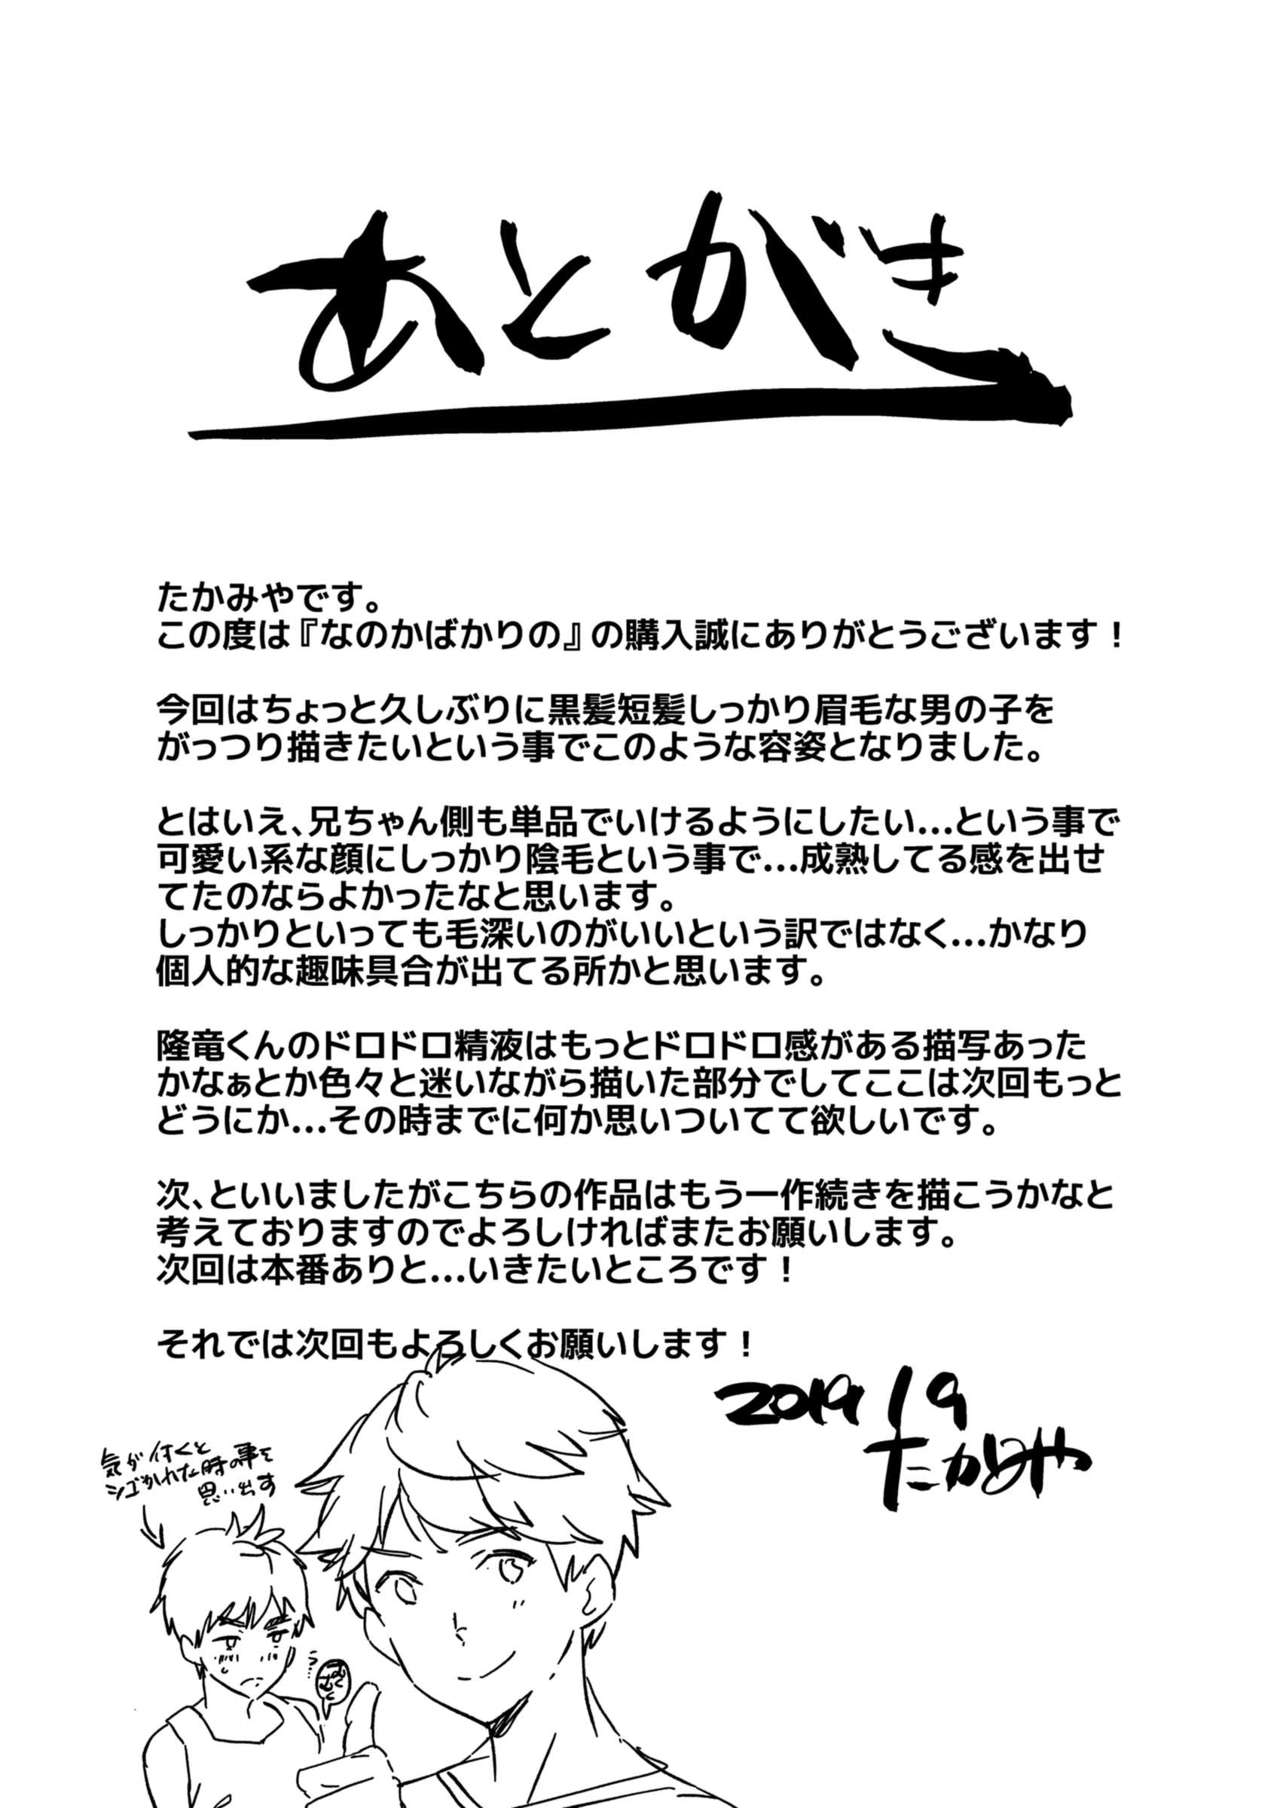 あとがき
たかみやです。
この度は『なのかばかりの』の購入誠にありがとうございます！
今回はちょっと久しぶりに黒髪短髪しっかり眉毛な男の子を
がっつり描きたいという事でこのような容姿となりました。
とはいえ、兄ちゃん側も単品でいけるようにしたい…という事で
可愛い系な顔にしっかり陰毛という事で…成熟してる感を出せ
てたのならよかったなと思います。
しっかりといっても毛深いのがいいという訳ではなく…かなり
個人的な趣味具合が出てる所かと思います。
隆竜くんのドロドロ精液はもっとドロドロ感がある描写あった
かなぁとか色々と迷いながら描いた部分でしてここは次回もっと
どうにか…その時までに何か思いついてて欲しいです。
次、といいましたがこちらの作品はもう一作続きを描こうかなと
考えておりますのでよろしければまたお願いします。
次回は本番ありと…いきたいところです！
それでは次回もよろしくお願いします！
2019/9
たかみや
気が付くと
シゴかれた時の事を
思い出す